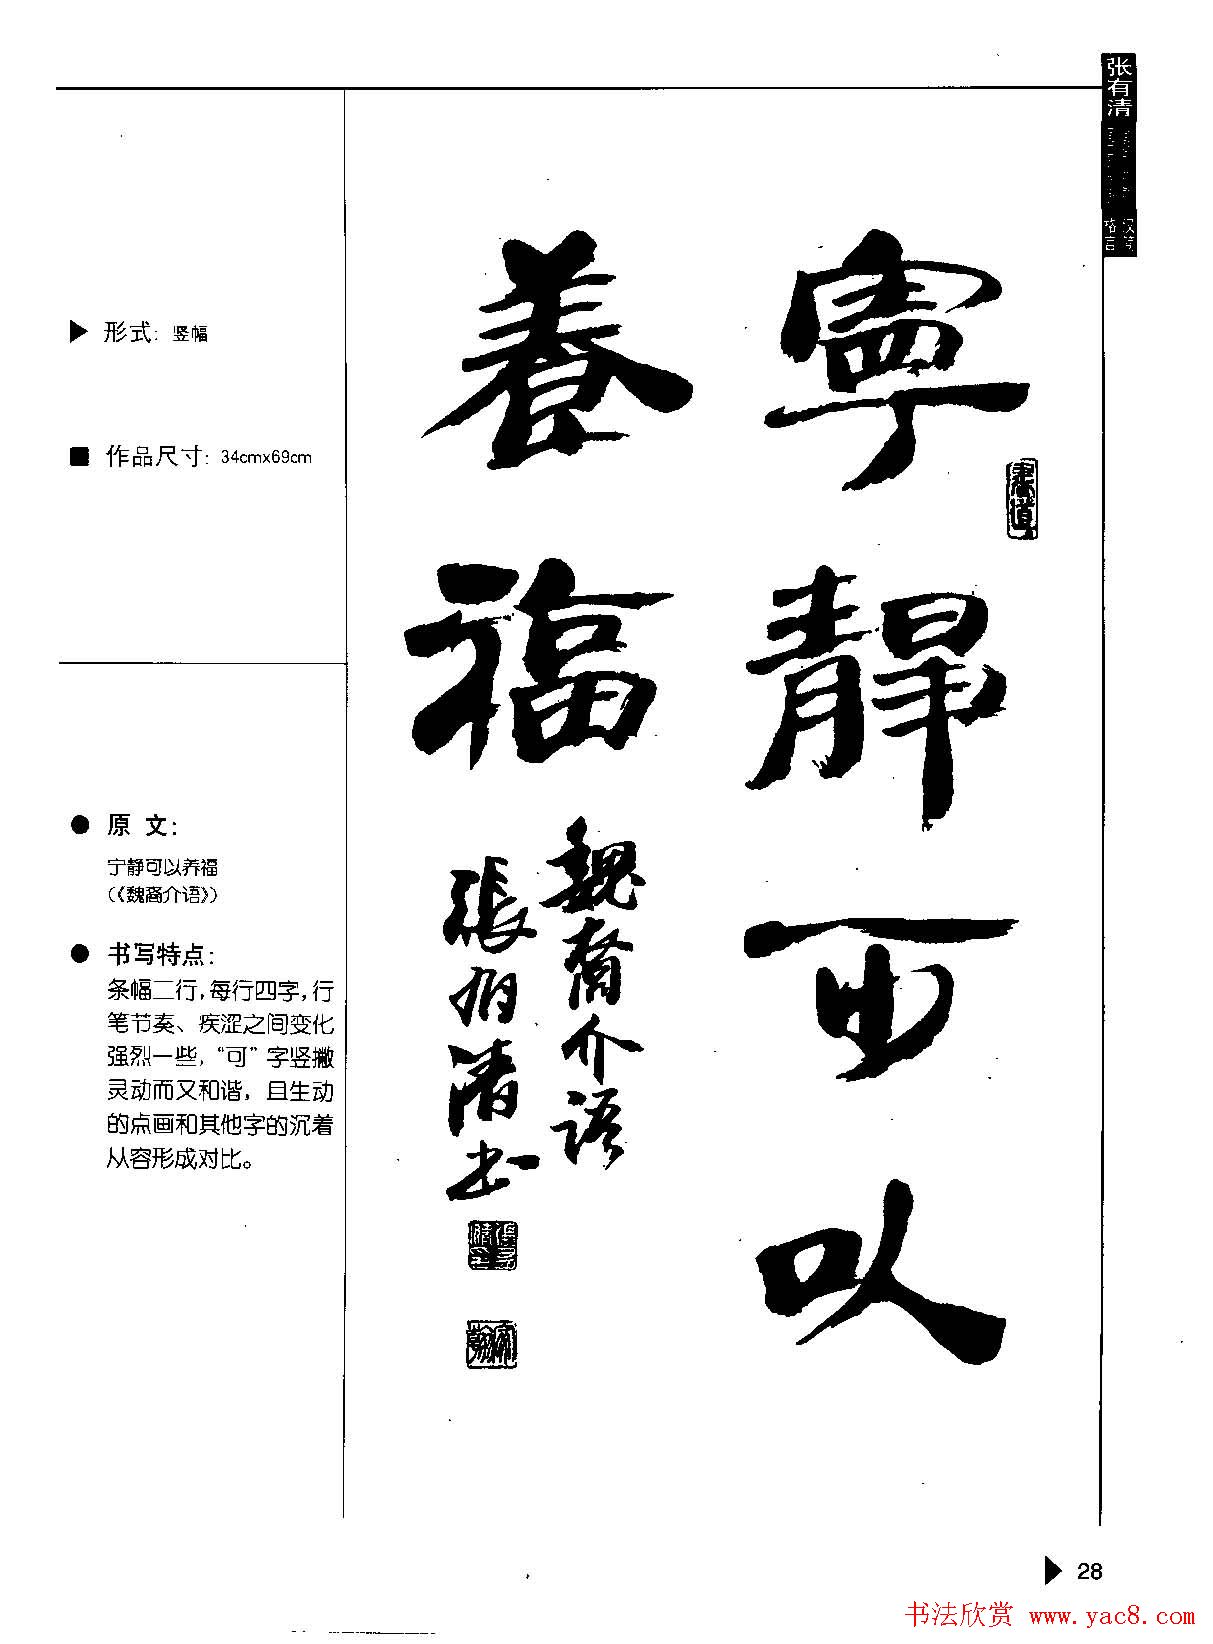 张有清
汉简
格言
形式：竖幅
作品尺寸：34cmx69cm
原 文：
宁静可以养福
（《魏裔介语》）
书写特点：
条幅二行，每行四字，行
笔节奏、疾涩之间变化
强烈一些，“可”字竖撇
灵动而又和谐，且生动
的点画和其他字的沉着
从容形成对比。
寧靜可以
養福
魏裔介语
張有清书
書道
28
书法欣赏 www.yac8.com